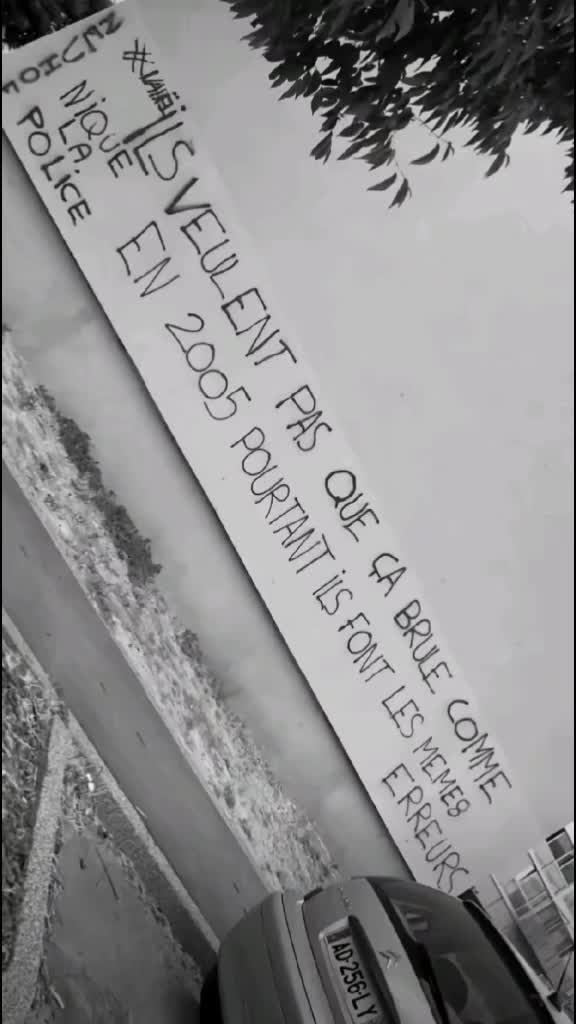 NEUHOF
NIQUE
LA
POLICE
ILS VEULENT PAS QUE ÇA BRULE COMME
EN 2005 POURTANT ILS FONT LES MEMES
ERREURS
AD-256-LY